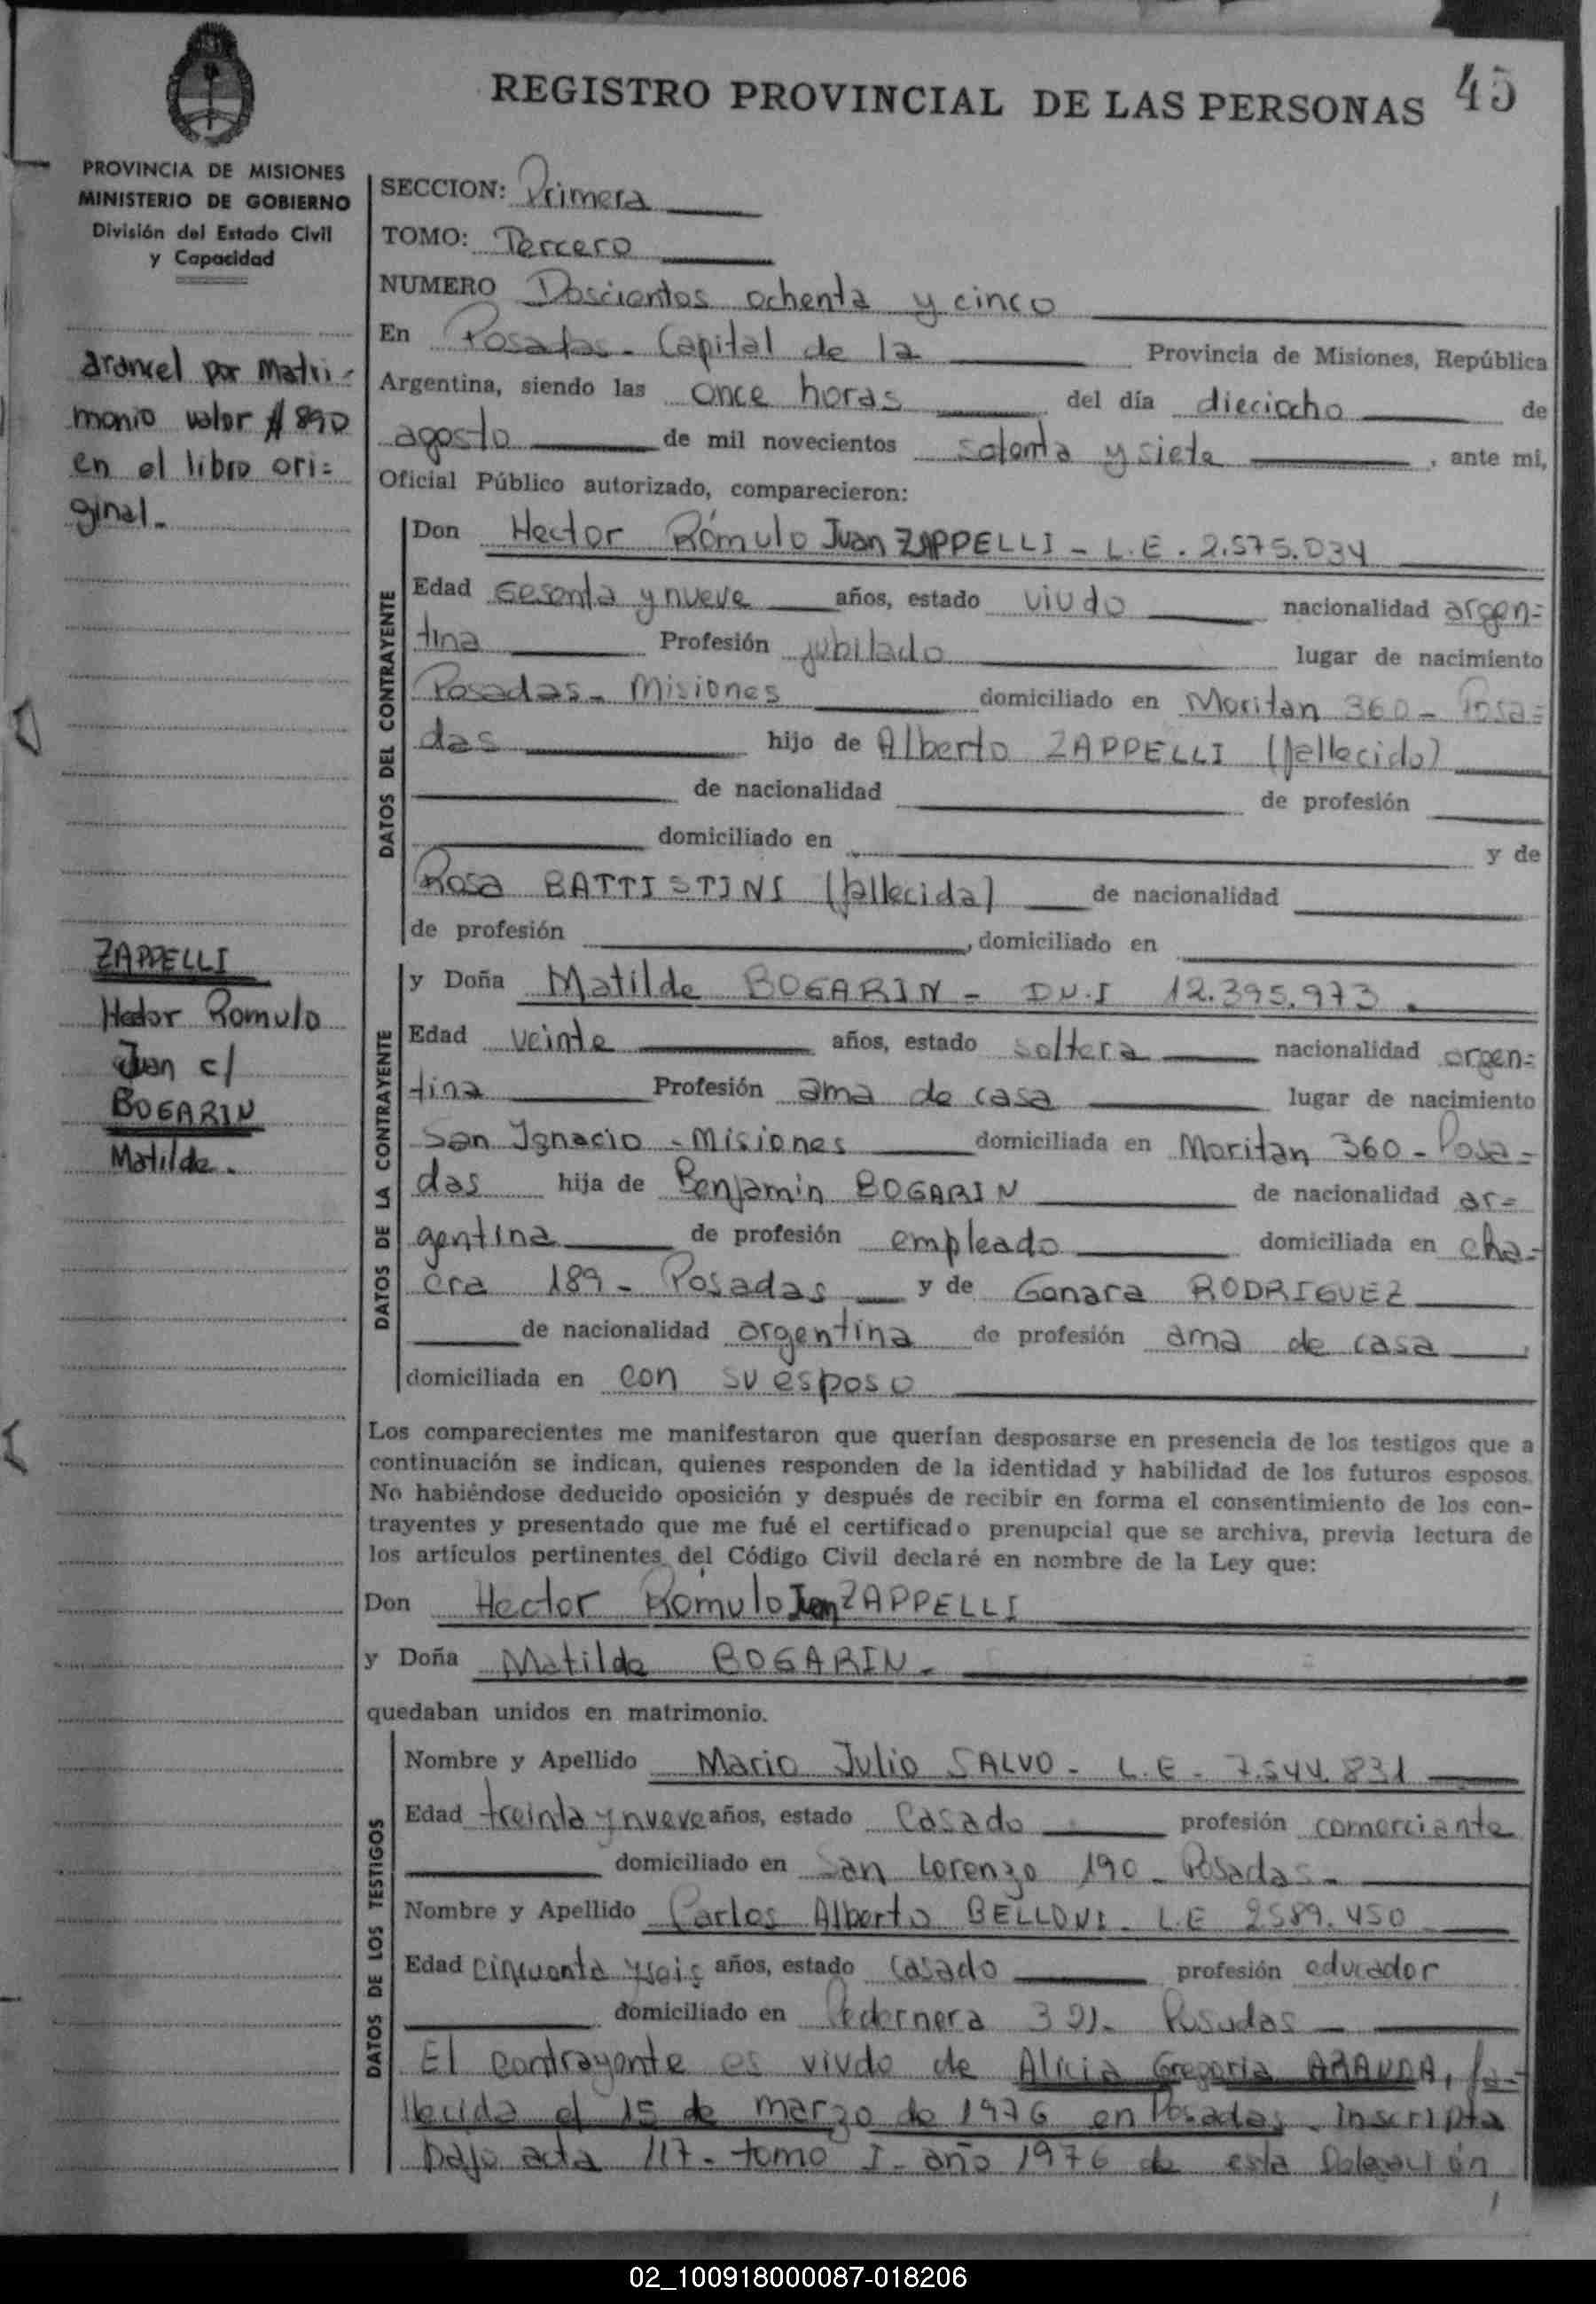 REGISTRO PROVINCIAL DE LAS PERSONAS 45
PROVINCIA DE MISIONES
MINISTERIO DE GOBIERNO
División del Estado Civil
y Capacidad
arancel por Matri-
monio valor $ 890
en el libro ori=
ginal.
ZAPPELLI
Hector Romulo
Juan c/
BOGARIN
Matilde.
SECCION: Primera
TOMO: Tercero
NUMERO Doscientos ochenta y cinco
En Posadas - Capital de la Provincia de Misiones, República
Argentina, siendo las once horas del día dieciocho de
agosto de mil novecientos setenta y siete, ante mi,
Oficial Público autorizado, comparecieron:
DATOS DEL CONTRAYENTE
Don Hector Rómulo Juan ZAPPELLI - L.E. 2.575.034
Edad sesenta y nueve años, estado viudo nacionalidad argen=
tina Profesión jubilado lugar de nacimiento
Posadas - Misiones domiciliado en Moritan 360 - Posa=
das hijo de Alberto ZAPPELLI (fallecido)
de nacionalidad de profesión
domiciliado en y de
Rosa BATTISTINI (fallecida) de nacionalidad
de profesión , domiciliado en
DATOS DE LA CONTRAYENTE
y Doña Matilde BOGARIN - D.N.I 12.395.973.
Edad veinte años, estado soltera nacionalidad argen=
tina Profesión ama de casa lugar de nacimiento
San Ignacio - Misiones domiciliada en Moritan 360 - Posa=
das hija de Benjamin BOGARIN de nacionalidad ar=
gentina de profesión empleado domiciliada en cha=
cra 189 - Posadas y de Genara RODRIGUEZ
de nacionalidad argentina de profesión ama de casa
domiciliada en con su esposo
Los comparecientes me manifestaron que querían desposarse en presencia de los testigos que a
continuación se indican, quienes responden de la identidad y habilidad de los futuros esposos.
No habiéndose deducido oposición y después de recibir en forma el consentimiento de los con-
trayentes y presentado que me fué el certificado prenupcial que se archiva, previa lectura de
los artículos pertinentes del Código Civil declaré en nombre de la Ley que:
Don Hector Romulo Juan ZAPPELLI
y Doña Matilde BOGARIN.
quedaban unidos en matrimonio.
DATOS DE LOS TESTIGOS
Nombre y Apellido Mario Julio SALVO - L.E - 7.544.831
Edad treinta y nueve años, estado Casado profesión comerciante
domiciliado en San Lorenzo 190 - Posadas -
Nombre y Apellido Carlos Alberto BELLONI - L.E 2589.450
Edad cincuenta y seis años, estado casado profesión educador
domiciliado en Pedernera 321 - Posadas -
El contrayente es viudo de Alicia Gregoria ARANDA, fa-
llecida el 15 de marzo de 1976 en Posadas, inscripta
bajo acta 117 - tomo I - año 1976 de esta Delegación
02_100918000087-018206